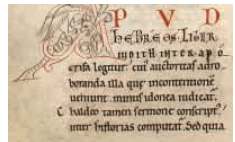 APVD
HEBREOS. LIBER
IUDITH INTER APO
crifa legitur. cui' auctoritas adro
boranda illa que incontentione
ueniunt. minus idonea iudicat.
Chaldeo tamen sermone conscript'
inter historias computat. Sed quia